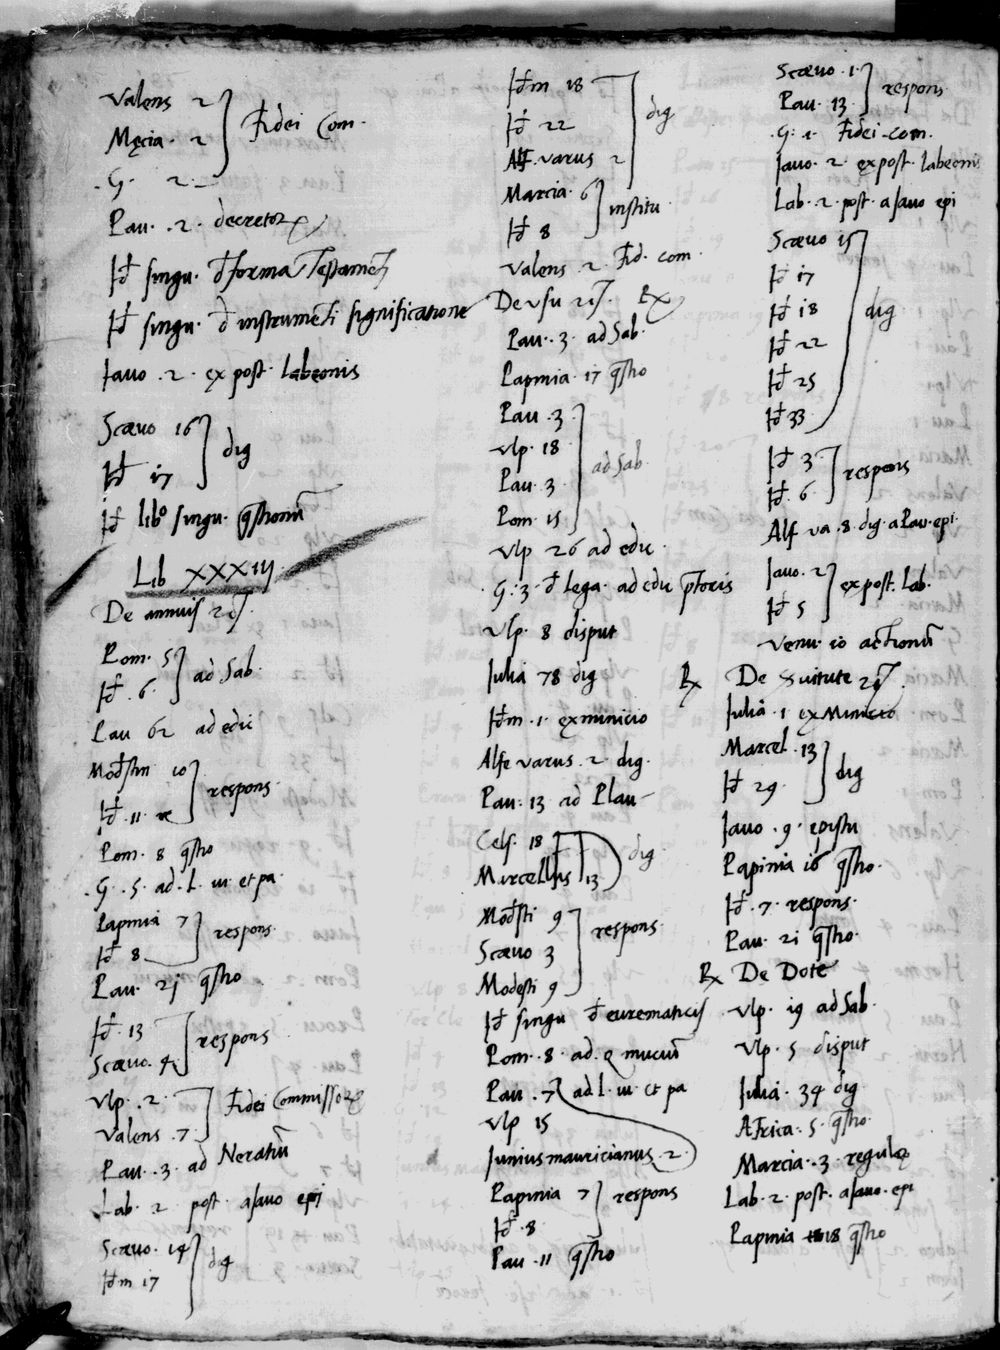 Valens 2
Męcia. 2 Fidei Com.
.G. 2.
Pau. .2. decretoꝝ
Id singu. d forma Testamēti
Id singu. d instrumēti significatione
Iauo .2. ex post. labeonis
Scæuo 16
Id 17 dig
Id libº singu. qstionū
Lib XXXIII.
De annuis
Pom. 5
Id .6. ad Sab.
Pau 62 ad edic
Modstin 10
Id .11. respons.
Pom. 8 qstio
.G .5. ad .l. iu. et pa.
Papinia 7
Id 8 respons.
Pau. 21 qstio
Id .13
Scæuo .4. respons
Vlp. .2. Fidei Commissoꝝ
Valens .7.
Pau. .3. ad Neratiū
Lab. 2. post. a Iauo epi
Scæuo. 14
Idm 17 dig
Idm 18
Id 22 dig
Alf. varus 2
Marcia. 6
Id 8 institu.
Valens .2. Fid. com.
De vsu
Pau. .3. ad Sab.
Papinia. 17 qstio
Pau .3
Vlp. 18 ad Sab.
Pau. 3
Pom. 15
Vlp 26 ad edic.
.G. 3. d lega. ad edic ptoris
Vlp. 8 disput
Iulia 78 dig
Idm .1. ex minicio
Alfe varus .2. dig.
Pau. 13 ad Plau
Cels. 18
Marcellus 13 dig.
Modsti 9
Scæuo 3 respons.
Modesti 9
Id singu d eurematicis
Pom. 8. ad. Q muciū
Pau .7. ad l. iu. et pa
Vlp 15
Iunius mauricianus .2.
Papinia 7 respons
Id .8.
Pau .11 qstio
Scæuo .1.
Pau. 13. respons.
.G. 1. Fidei com.
Iauo. 2. ex post. labeonis
Lab. 2. post. a Iauo epi
Scæuo 15
Id 17
Id 18 dig
Id 22
Id 25
Id 33
Id 3
Id. 6. respons
Alf va .8. dig. a Pau. epi.
Iauo. 2
Id 5 ex post. Lab.
Venu. 10 actionū
De Suitute
Iulia .1 ex Minicio
Marcel. 13
Id 29. dig
Iauo .9. epistu
Papinia 16 qstio.
Id .7. respons.
Pau. 21 qstio.
De Dote
Vlp. 19 ad Sab.
Vlp. 5 disput
Iulia. 34 dig
Africa. 5. qstio.
Marcia. .3. regulę
Lab. 2. post. a Iauo. epi
Papinia 18 qstio